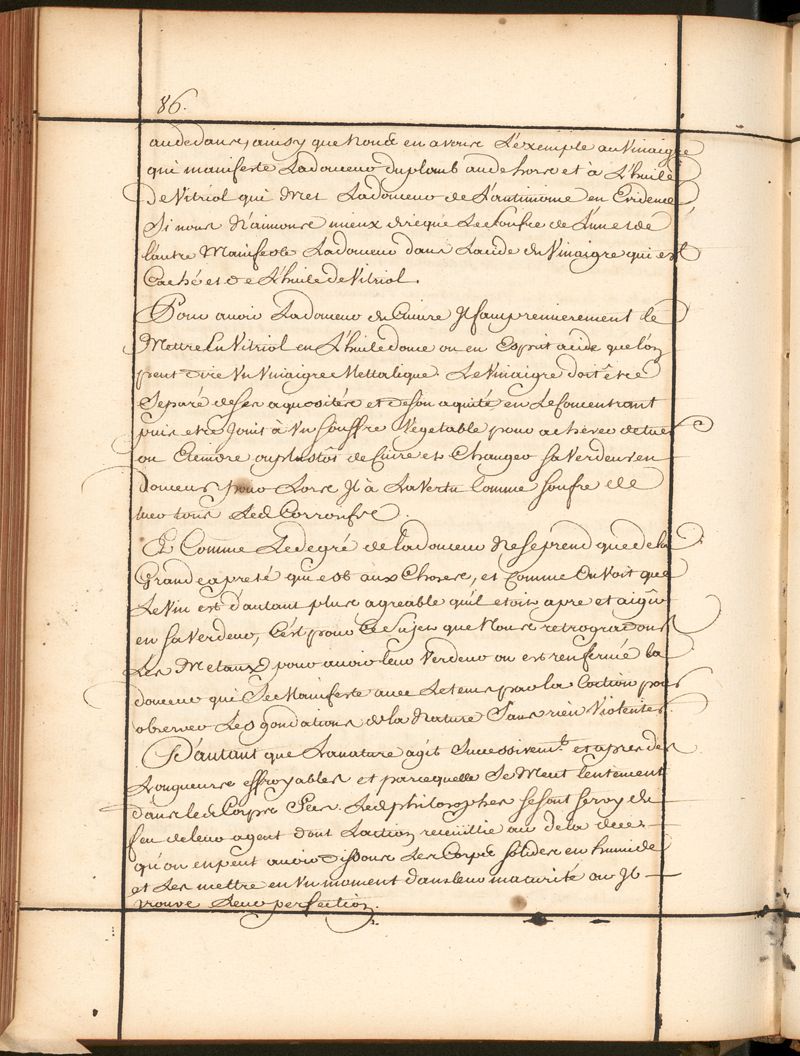 86.
audedans, ainsy que Nous en avons L'exemple au Vinaigre
qui manifeste Ladouceur duplomb audehors et à L'huile
De Vitriol qui Met Ladouceur de L'antimoine en Evidence
Si nous N'aimons mieux dire que Le soufre de L'un et de
L'autre Manifeste Ladouceur dans L'acide du Vinaigre qui est
Caché et de L'huile de Vitriol.
Pour avoir Ladouceur du Cuivre Jl faut premierement le
Mettre En Vitriol en L'huile dome ou en Esprit acide que l'on
peut dire Un Vinaigre Mettalique. Le Vinaigre doit être
Separé de ses aquosités et de son aquité en Le Concentrant
puis etre Joint à Un Souffre Vegetable pour achever de tuer
ou Eteindre ou plustôs de Cuire et Changer sa Verdeur en
douceur, pour Lors Jl à La Vertu Comme soufre de
tuer tous Les Corrosifs.
Et Comme Le degré de la douceur Ne se prend que de la
Grande apreté qui est aux Choses, et Comme On Voit que
Le Vin est d'autant plus agreable qu'il etoit apre et aigû
en sa Verdeur, C'est pour Ce Sujet que Nous retrogradons
Les Metaux pour avoir leur Verdeur ou est renfermée la
douceur qui Se Manifeste avec Le tems par la Coction pour
observer Les gradations de la Nature Sans rien Violenter.
D'autant que La nature agit Successivem.t et apres des
Longueurs effroyables et parcequelle Se Meut lentement
dans le Corps Les philosophes se sont servy du
feu de leur agent dont L'action recüillie au dela de ce
qu'on en peut avoir dissous Les Corps solides en humide
et Les mettre en Un moment dans leur maturité ou Jl
trouve Leur perfection.